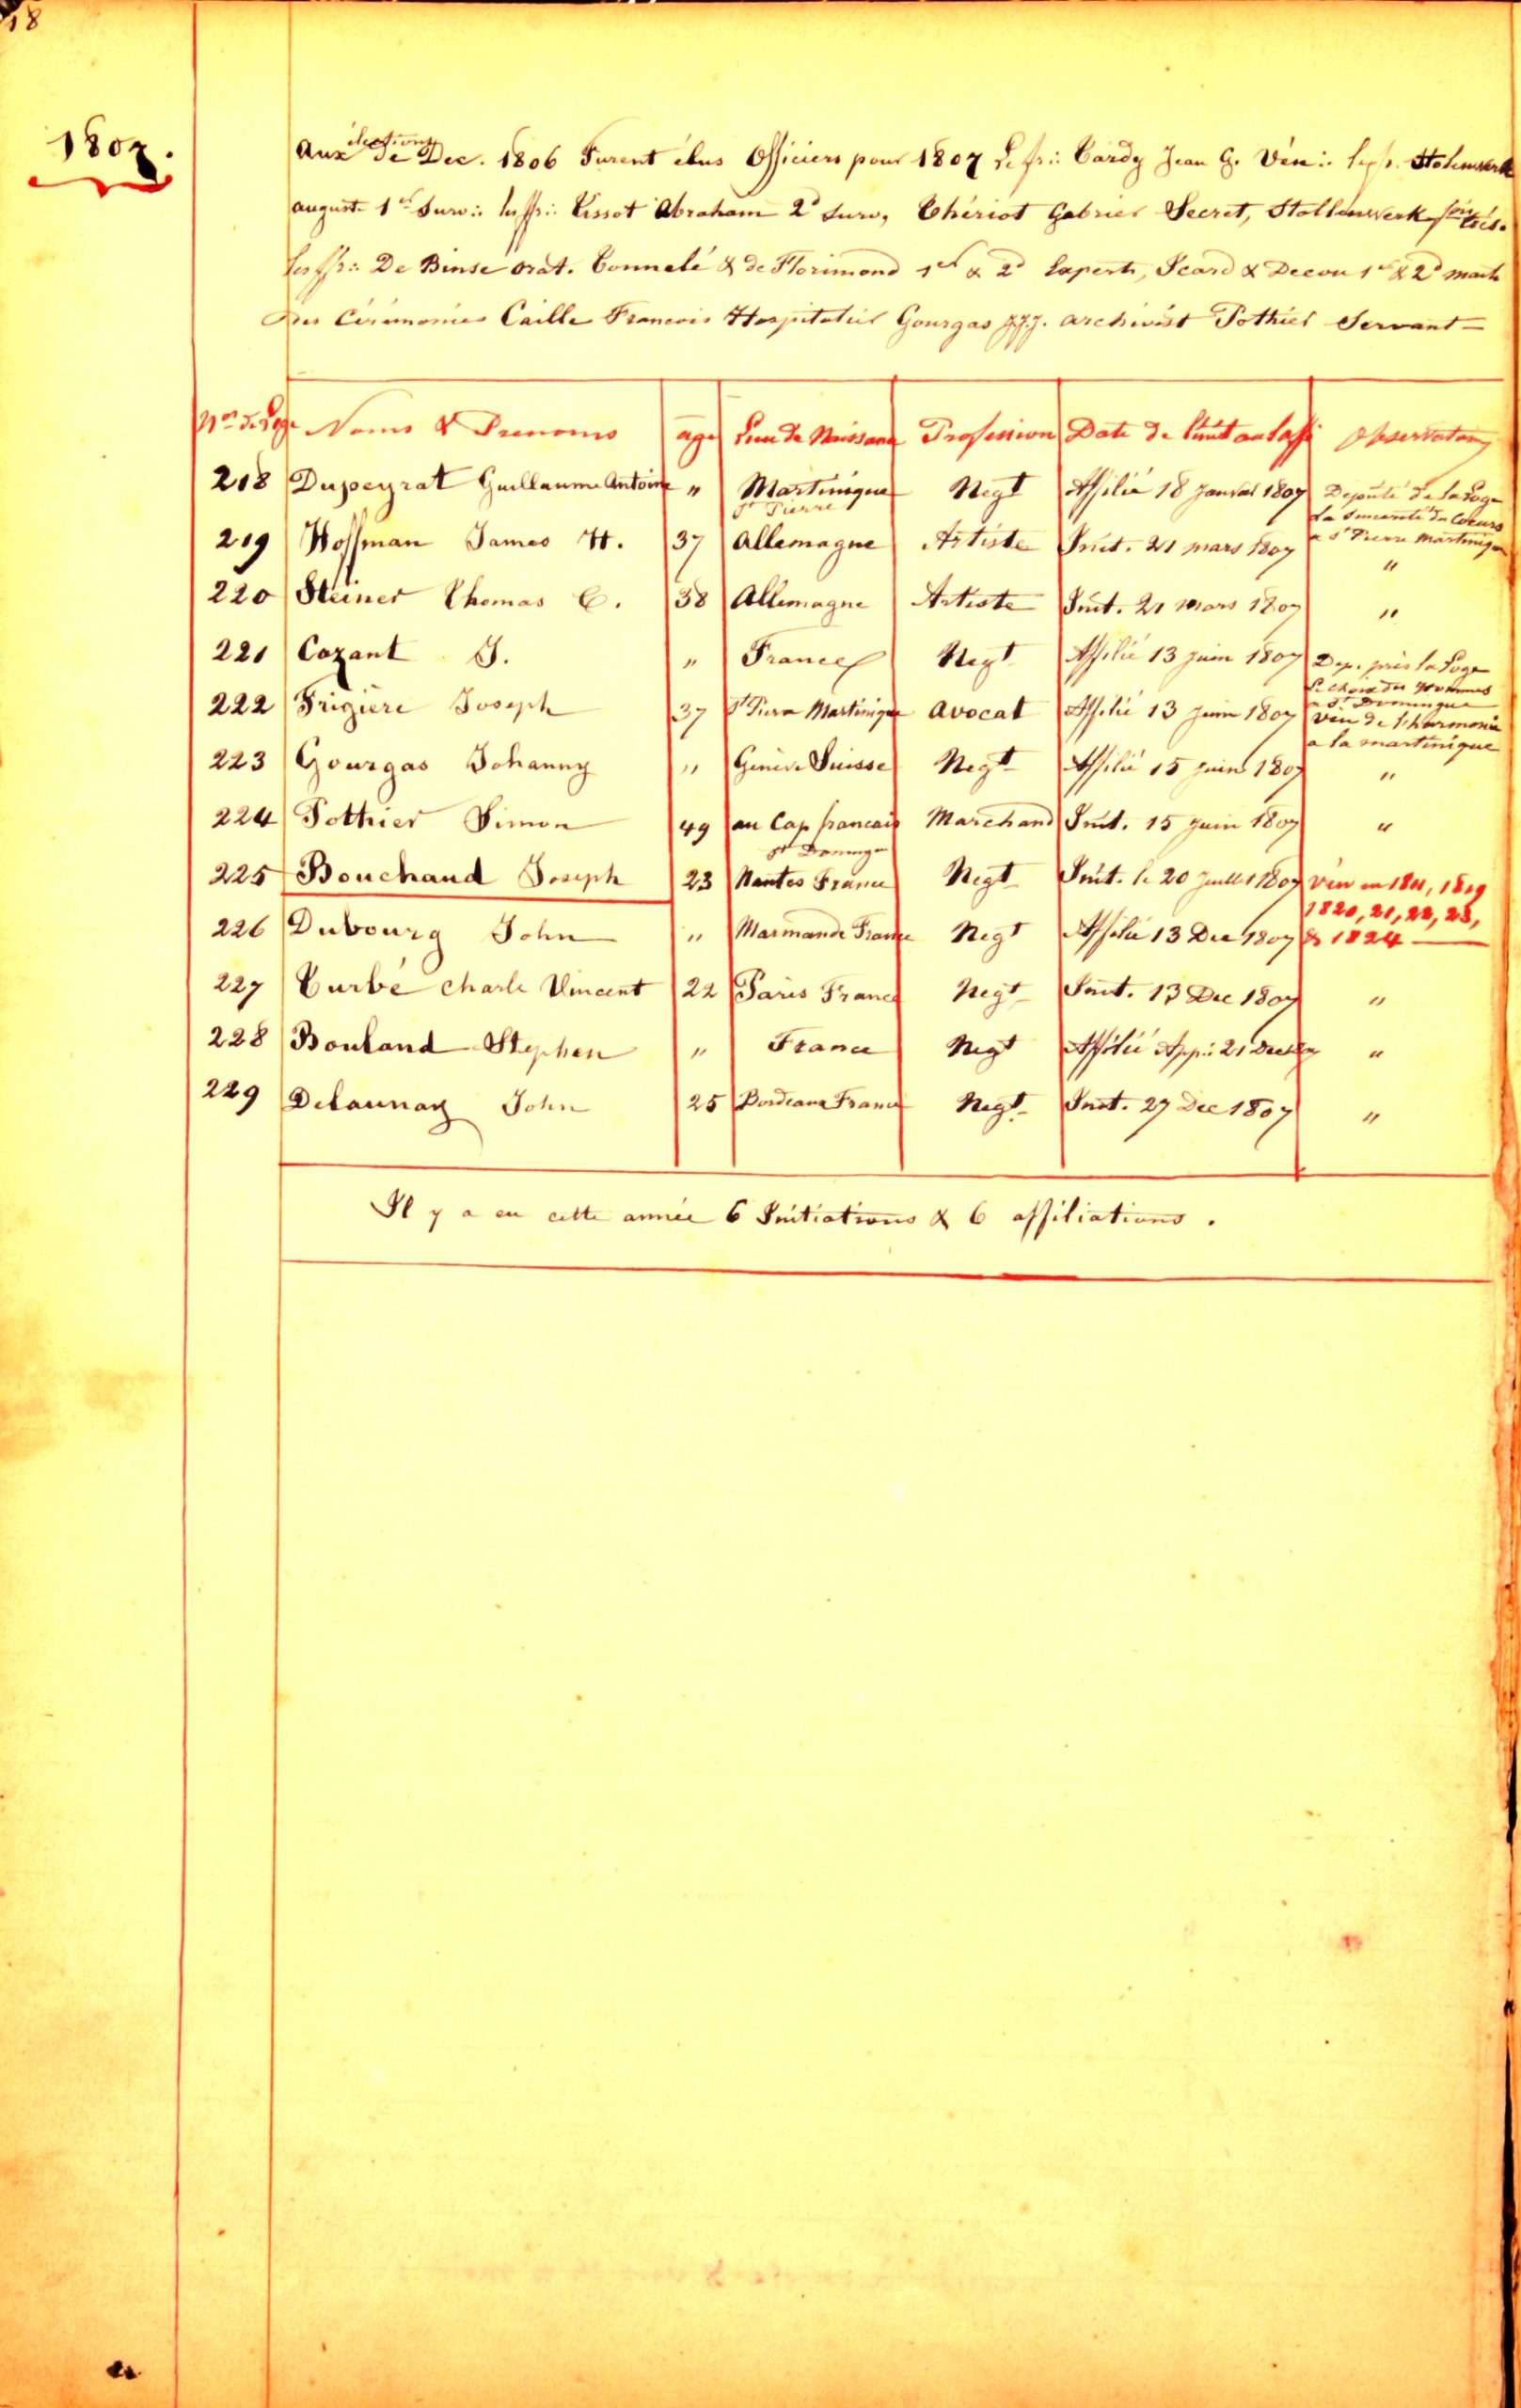 18
1807.
Aux élections de Dec. 1806 Furent élus Officiers pour 1807 Le fr∴ Cardy Jean G. Vén∴ Stollenwerk
auguste 1er Surv∴ Tissot Abraham 2d Surv, Thériot Gabriel Secret, Stollenwerk
Les ff∴ De Binse orat. Connelé & de Florimond 1er & 2d Experts, Icard & Decou 1er & 2d
des Cérémonies Caille Francois Hospitalier Gourgas JJJ. archivist Pothier Servant —
Nos de Loge Noms & Prenoms age Lieu de Naissance Profession Date de l'init ou l'affi Observations
218 Dupeyrat Guillaume Antoine " Martinique St Pierre Negt Affilié 18 Janvier 1807 Députe de la Loge
La Sincerité des Coeurs
a St Pierre Martinique
219 Hoffman James H. 37 Allemagne Artiste Init. 21 mars 1807 "
220 Steiner Thomas C. 38 Allemagne Artiste Init. 21 mars 1807 "
221 Cozant J. " France Negt Affilié 13 juin 1807 Dep. près la Loge
Le choix des hommes
a St Domingue
222 Frigière Joseph 37 St Pierre Martinique avocat Affilié 13 juin 1807 Ven de l'harmonie
a la martinique
223 Gourgas Johanny " Genève Suisse Negt Affilié 15 juin 1807 "
224 Pothier Simon 49 au Cap francais St Domingue Marchand Init. 15 juin 1807 "
225 Bouchaud Joseph 23 Nantes France Negt Init. le 20 Juillet 1807 Vén en 1811, 1819
1820, 21, 22, 23,
& 1824
226 Dubourg John " Marmande France Negt Affilié 13 Dec 1807
227 Curbé Charle Vincent 22 Paris France Negt Init. 13 Dec 1807 "
228 Bouland Stephen " France Negt Affilié App∴ 21 Dec "
229 Delaunay John 25 Bordeaux France Negt Init. 27 Dec 1807 "
Il y a eu cette année 6 Initiations & 6 affiliations.